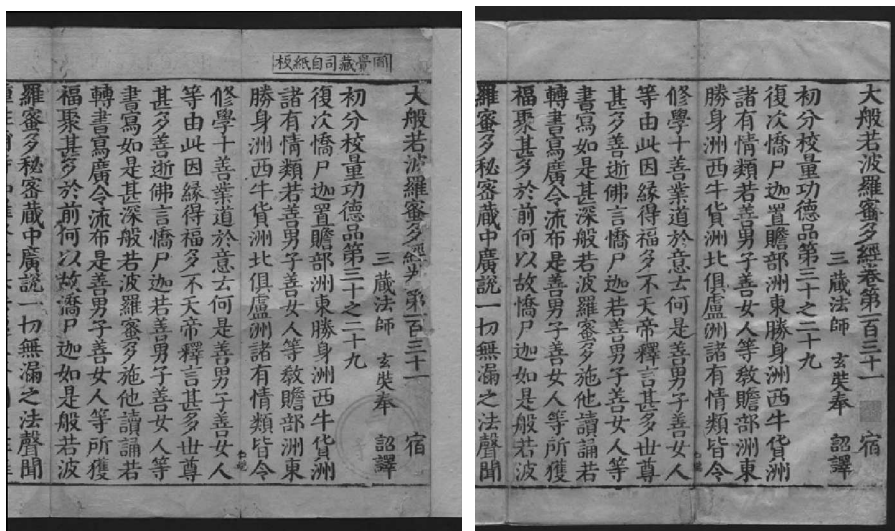 圓覺藏司自紙板
大般若波羅蜜多經 第一百三十一 宿
三藏法師 玄奘奉 詔譯
初分校量功德品第三十之二十九
復次憍尸迦置贍部洲東勝身洲西牛貨洲
諸有情類若善男子善女人等教贍部洲東
勝身洲西牛貨洲北俱盧洲諸有情類皆令
修學十善業道於意云何是善男子善女人
等由此因緣得福多不天帝釋言甚多世尊
甚多善逝佛言憍尸迦若善男子善女人等
書寫如是甚深般若波羅蜜多施他讀誦若
轉書寫廣令流布是善男子善女人等所獲
福聚甚多於前何以故憍尸迦如是般若波
羅蜜多秘密藏中廣說一切無漏之法聲聞
大般若波羅蜜多經卷第一百三十一 宿
三藏法師 玄奘奉 詔譯
初分校量功德品第三十之二十九
復次憍尸迦置贍部洲東勝身洲西牛貨洲
諸有情類若善男子善女人等教贍部洲東
勝身洲西牛貨洲北俱盧洲諸有情類皆令
修學十善業道於意云何是善男子善女人
等由此因緣得福多不天帝釋言甚多世尊
甚多善逝佛言憍尸迦若善男子善女人等
書寫如是甚深般若波羅蜜多施他讀誦若
轉書寫廣令流布是善男子善女人等所獲
福聚甚多於前何以故憍尸迦如是般若波
羅蜜多秘密藏中廣說一切無漏之法聲聞